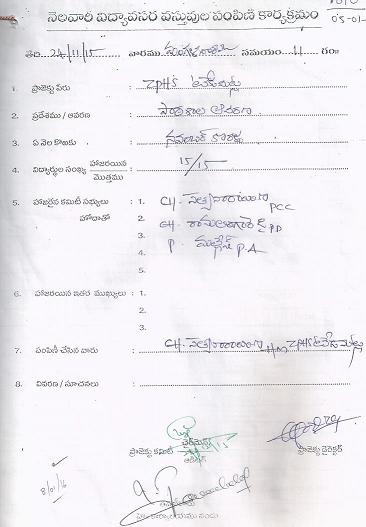 నెలవారీ విద్యావసర వస్తువుల పంపిణీ కార్యక్రమం
05-01-
తేది. 24/11/15 వారము మంగళవారం సమయం 11 గం॥
1. ప్రాజెక్టు పేరు : ZPHS
2. ప్రదేశము / ఆవరణ : పాఠశాల ఆవరణ
3. ఏ నెల కొఱకు : నవంబర్ కొరకు
4. విద్యార్థుల సంఖ్య హాజరయిన / మొత్తము : 15/15
5. హాజరైన కమిటీ సభ్యులు హోదాతో : 1. CH. సత్యనారాయణ PCC
2. CH. PD
3. P. మల్లేష్ P.A
4.
5.
6. హాజరయిన ఇతర ముఖ్యులు : 1.
2.
3.
7. పంపిణీ చేసిన వారు : CH. సత్యనారాయణ HM ZPHS
8. వివరణ / సూచనలు :
ప్రాజెక్టు కమిటి ఛైర్మన్
ప్రాజెక్టు డైరెక్టర్
8/01/16